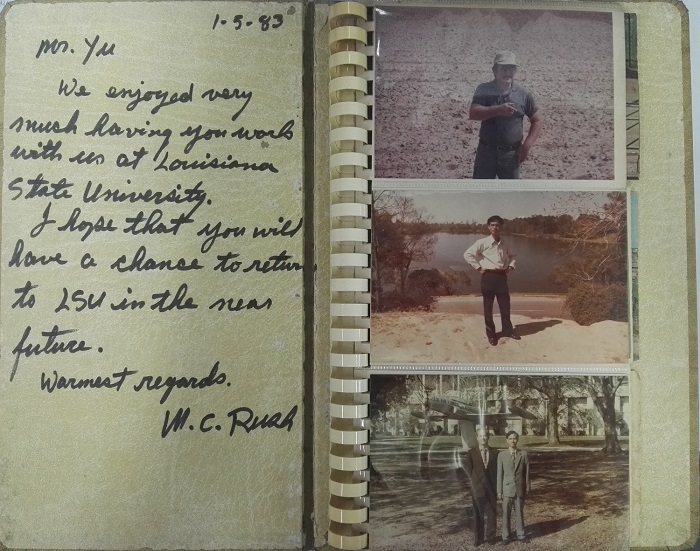 1-5-83
Mr. Yu
We enjoyed very
much having you work
with us at Louisiana
State University.
I hope that you will
have a chance to return
to LSU in the near
future.
Warmest regards.
M. C. Rush